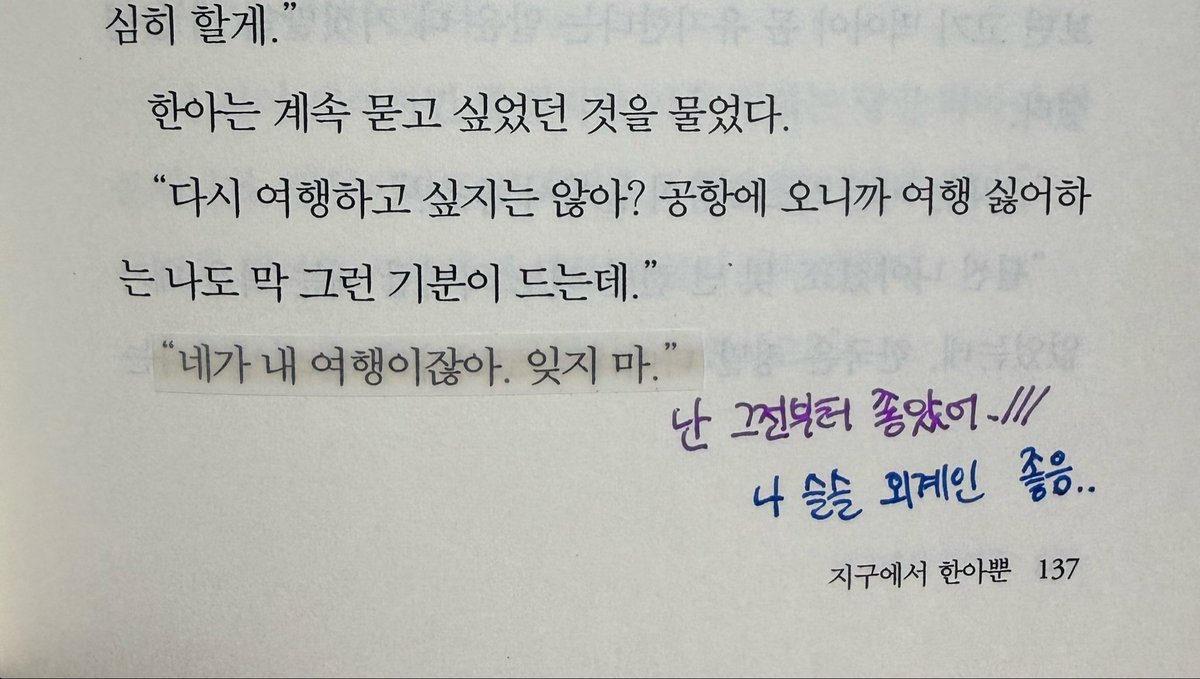 심히 할게.”
한아는 계속 묻고 싶었던 것을 물었다.
“다시 여행하고 싶지는 않아? 공항에 오니까 여행 싫어하
는 나도 막 그런 기분이 드는데.”
“네가 내 여행이잖아. 잊지 마.”
난 그전부터 좋았어-///
나 슬슬 외계인 좋음..
지구에서 한아뿐 137